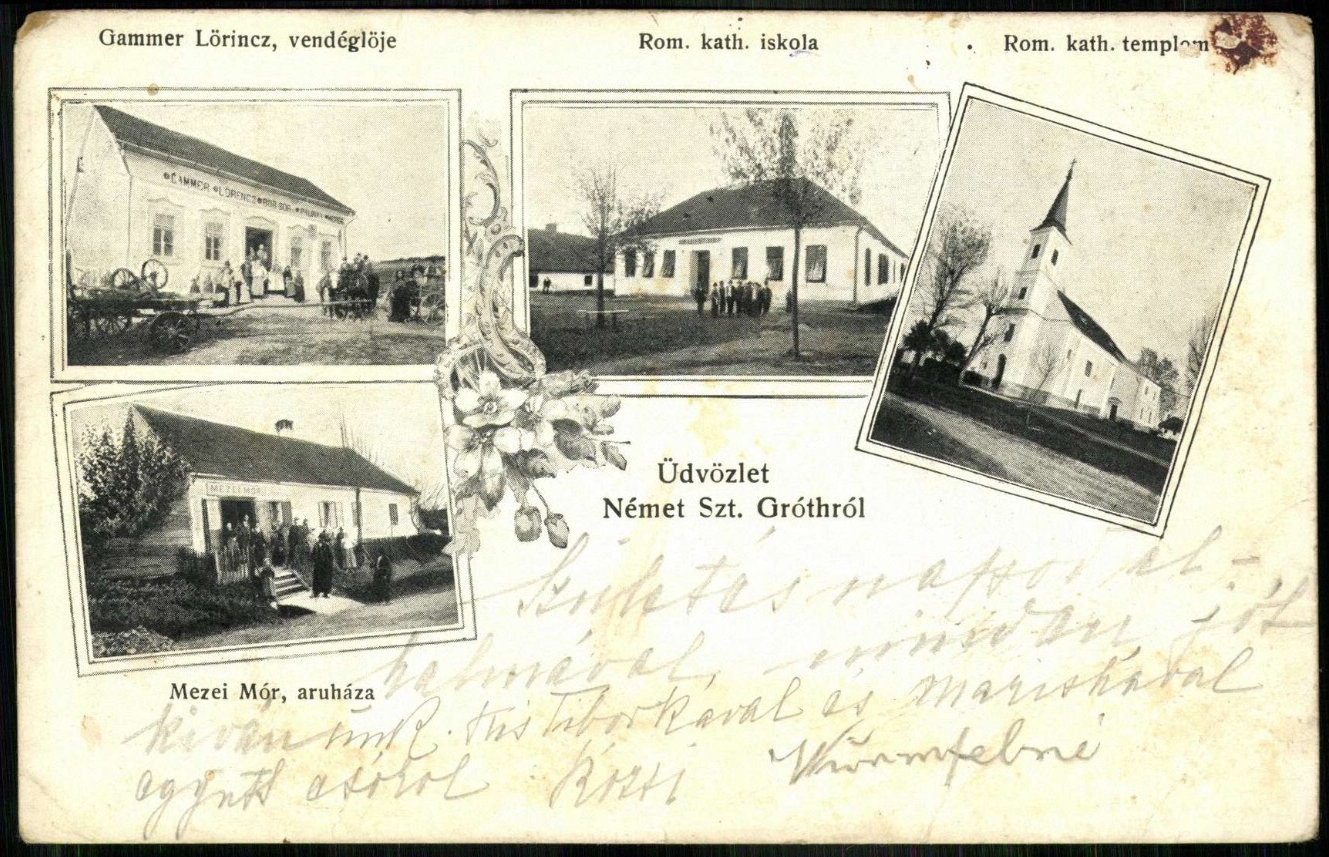 Gammer Lörincz, vendéglöje
Rom. kath. iskola
Rom. kath. templom
GAMMER LÖRENCZ
MEZEI MÓR
Üdvözlet
Német Szt. Gróthról
Mezei Mór, aruháza
napjos al-
kalmával, mindan jót
kiván unk. Kis tiborkával és Mariskával
egyutt csókol Rózsi